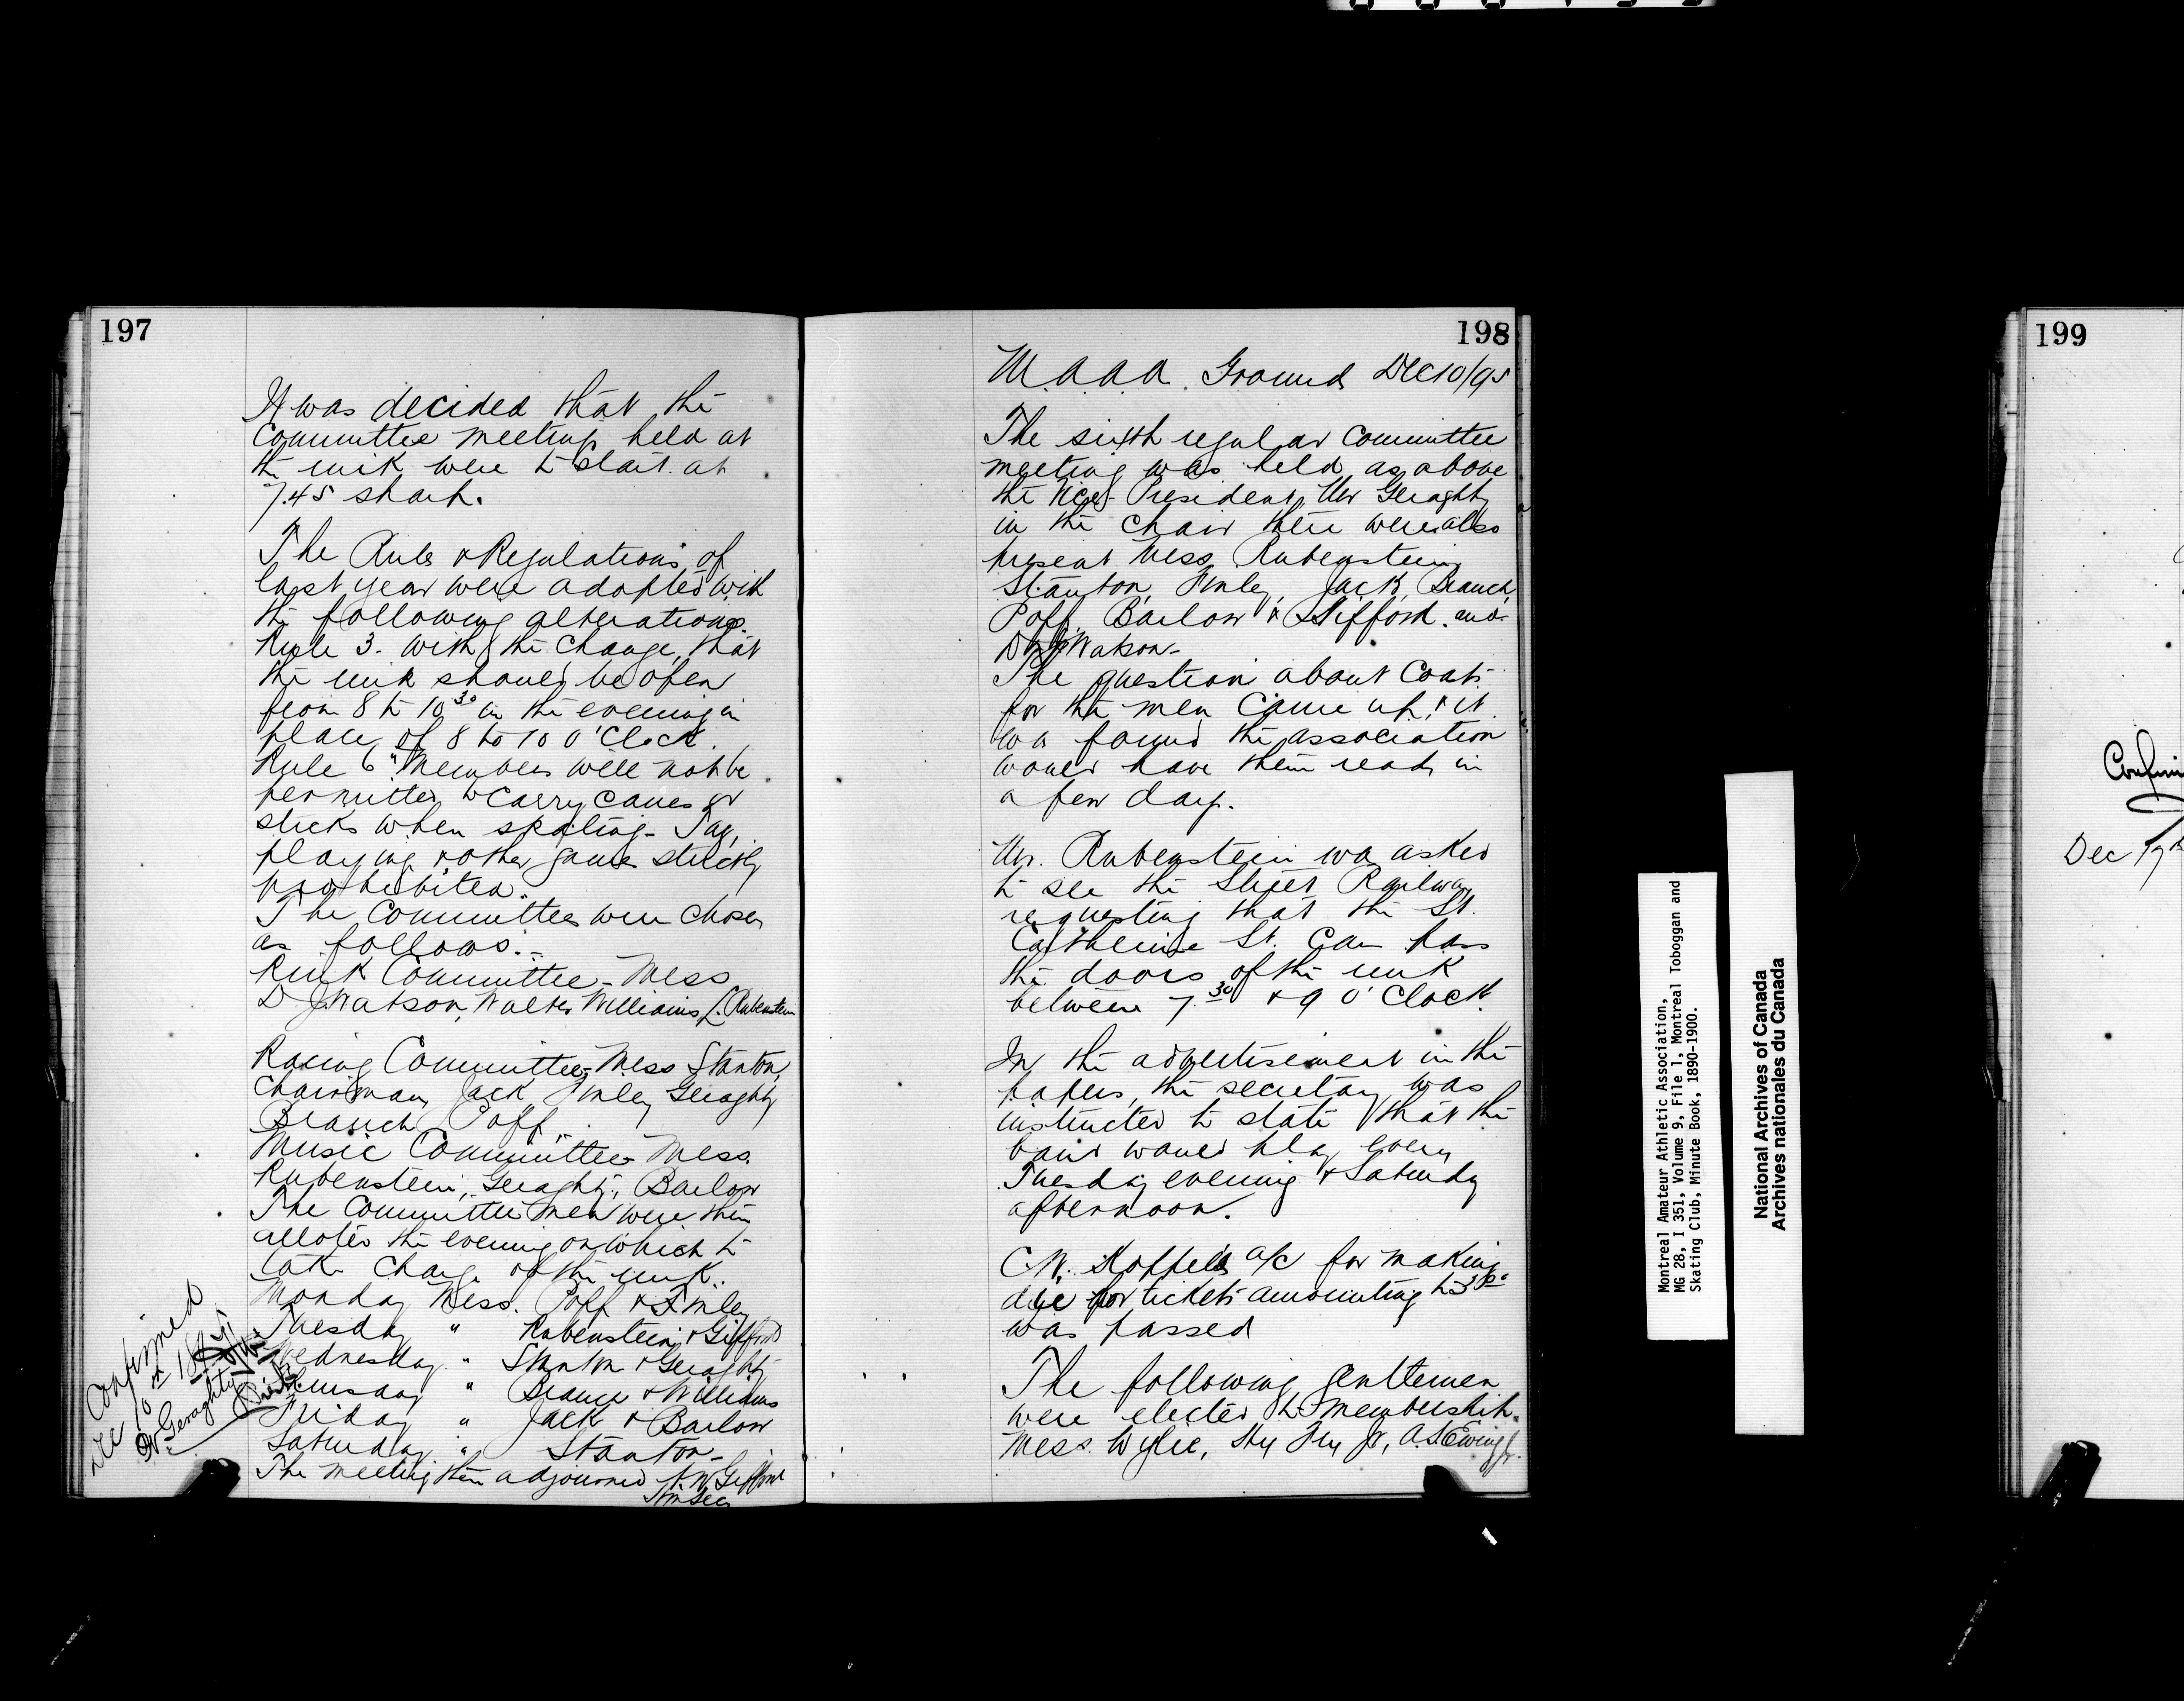 197
It was decided that the
Committee meetings held at
the rink were to start at
7.45 sharp.
The Rules & Regulations of
last year were adopted with
the following alterations.
Rule 3. with the change, that
the rink should be open
from 8 to 10 30 in the evening in
place of 8 to 10 O'Clock.
Rule 6 "Members will not be
permitted to carry canes or
sticks when skating- Tag,
playing & other games strictly
prohibited.
The Committees were chosen
as follows:-
Rink Committee- Mess
D J Watson, Walter Williams, L. Rubenstein
Racing Committee- Mess Stanton,
Chairman, Jack, Finley, Geraghty
Branch, Poff.
Music Committee- Mess.
Rubenstein, Geraghty, Barlow
The Committee men were then
alloted the evening on which to
take charge of the rink..
Monday Mess. Poff & Finley
Tuesday " Rubenstein & Gifford
Wednesday " Stanton & Geraghty
Thursday " Branch & Williams
Friday " Jack & Barlow
Saturday " Stanton-
The meeting then adjourned A. W. Gifford
Hon Sec
Confirmed
Dec 10th
Geraghty
198
M.A.A.A. Grounds Dec 10/95
The sixth regular Committee
meeting was held as above
the Vice President, Mr Geraghty
in the chair there were also
present Mess Rubenstein,
Stanton, Finley, Jack, Branch,
Poff, Barlow & Gifford. and
D Watson-
The question about Coats
for the men came up, & it
was found the association
would have them ready in
a few days.
Mr. Rubenstein was asked
to see the Street Railway
requesting that the St.
Catherine St. Cars pass
the doors of the rink
between 7.30 & 9 O'Clock.
In the advertisement in the
papers, the secretary was
instructed to state that the
band would play every
Tuesday evening & Saturday
afternoon.
a/c for making
die for tickets amounting to
was passed
The following gentlemen
were elected to membership.
Mess. Wylie, Jr, A.S. Ewing Jr.
199
Dec 17th
Montreal Amateur Athletic Association,
MG 28, I 351, Volume 9, File 1, Montreal Toboggan and
Skating Club, Minute Book, 1890-1900.
National Archives of Canada
Archives nationales du Canada